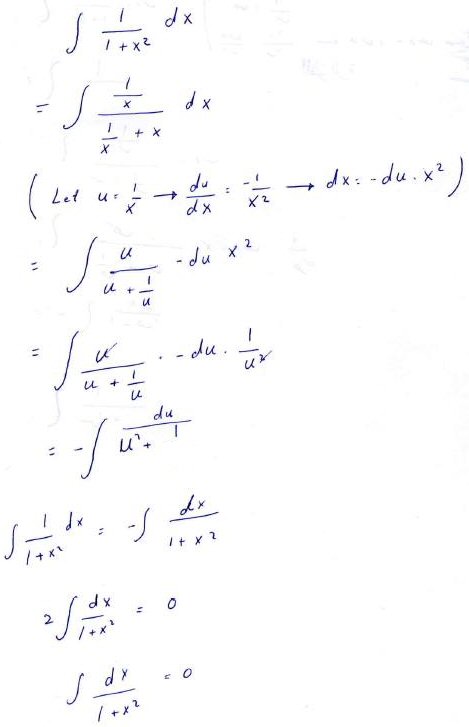 ∫ 1/(1+x²) dx
= ∫ (1/x)/(1/x + x) dx
( Let u = 1/x → du/dx = -1/x² → dx = -du · x² )
= ∫ u/(u + 1/u) -du x²
= ∫ u/(u + 1/u) · -du · 1/u²
= -∫ du/(u² + 1)
∫ 1/(1+x²) dx = -∫ dx/(1+x²)
2∫ dx/(1+x²) = 0
∫ dx/(1+x²) = 0